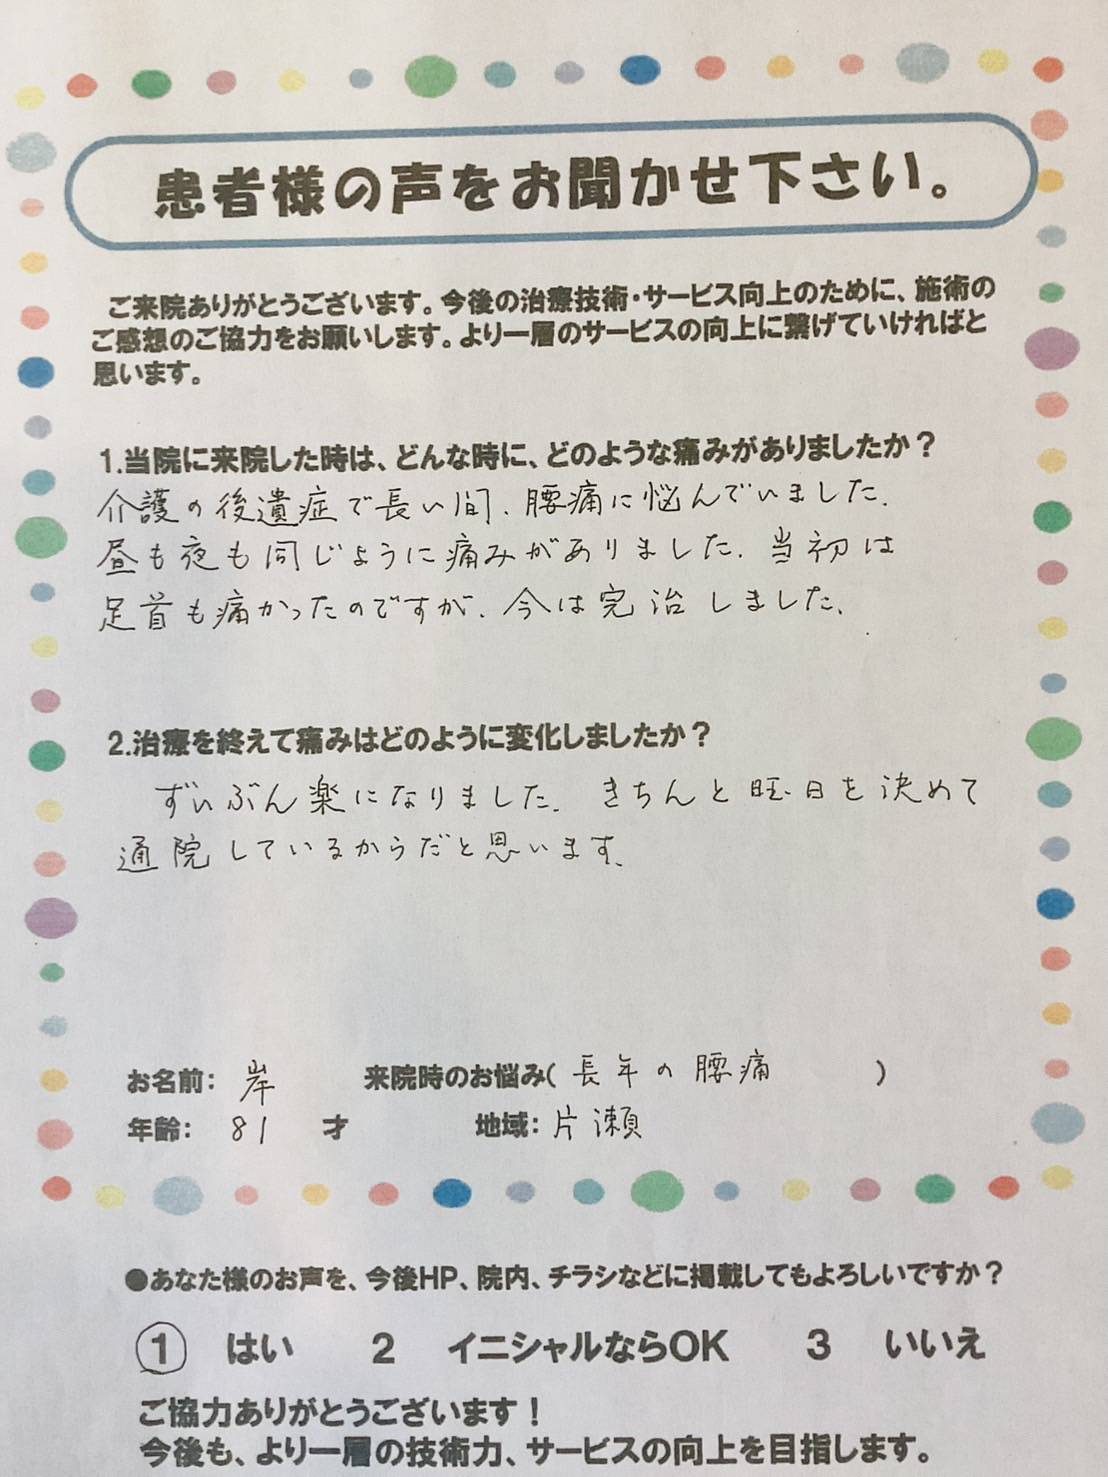 患者様の声をお聞かせ下さい。
ご来院ありがとうございます。今後の治療技術・サービス向上のために、施術の
ご感想のご協力をお願いします。より一層のサービスの向上に繋げていければと
思います。
1.当院に来院した時は、どんな時に、どのような痛みがありましたか？
介護の後遺症で長い間、腰痛に悩んでいました。
昼も夜も同じように痛みがありました。当初は
足首も痛かったのですが、今は完治しました。
2.治療を終えて痛みはどのように変化しましたか？
ずいぶん楽になりました。きちんと曜日を決めて
通院しているからだと思います。
お名前： 岸 来院時のお悩み( 長年の腰痛 )
年齢： 81 才 地域： 片瀬
●あなた様のお声を、今後HP、院内、チラシなどに掲載してもよろしいですか？
1 はい 2 イニシャルならOK 3 いいえ
ご協力ありがとうございます！
今後も、より一層の技術力、サービスの向上を目指します。